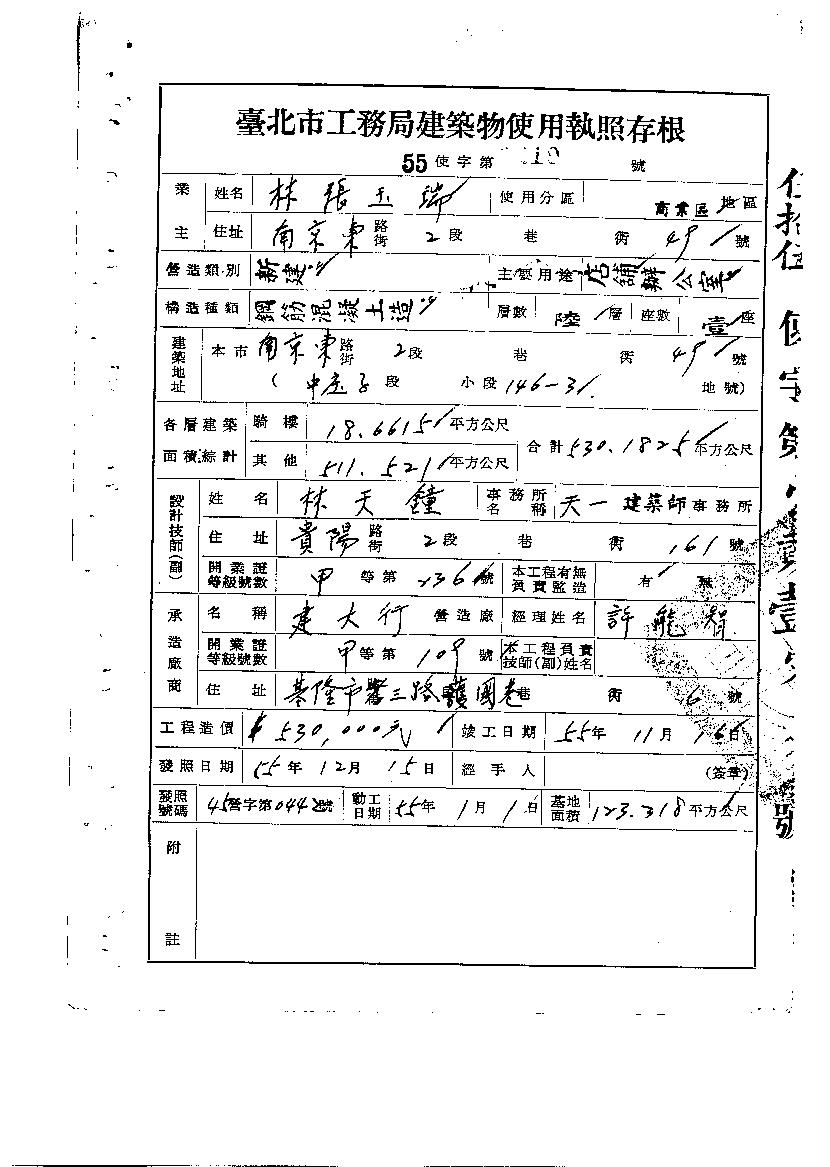 臺北市工務局建築物使用執照存根
55使字第 10 號
業主 姓名 林張玉瑞 使用分區 商業區 地區
住址 南京東路街 2段 巷 街 49 號
營造類別 新建 主要用途 店舖辦公室
構造種類 鋼筋混凝土造 層數 陸 層 座數 壹座
建築地址 本市 南京東路街 2段 巷 街 49 號
(中庄子段 小段 146-31 地號)
各層建築面積綜計 騎樓 18.6615平方公尺 合計 530.1825平方公尺
其他 511.521平方公尺
設計技師(副) 姓名 林天鐘 事務所名稱 天一建築師事務所
住址 貴陽路街 2段 巷 街 161 號
開業證等級號數 甲等第 236 號 本工程有無負責監造 有 無
承造廠商 名稱 建大行 營造廠 經理姓名 許能
開業證等級號數 甲等第 109 號 本工程負責技師(副)姓名
住址 基隆市 三路 國巷 巷 街 6 號
工程造價 $530,000元 竣工日期 55年 11月 16日
發照日期 55年 12月 15日 經手人 (簽章)
發照號碼 45營字第0442號 動工日期 55年 1月 1日 基地面積 123.318平方公尺
附註